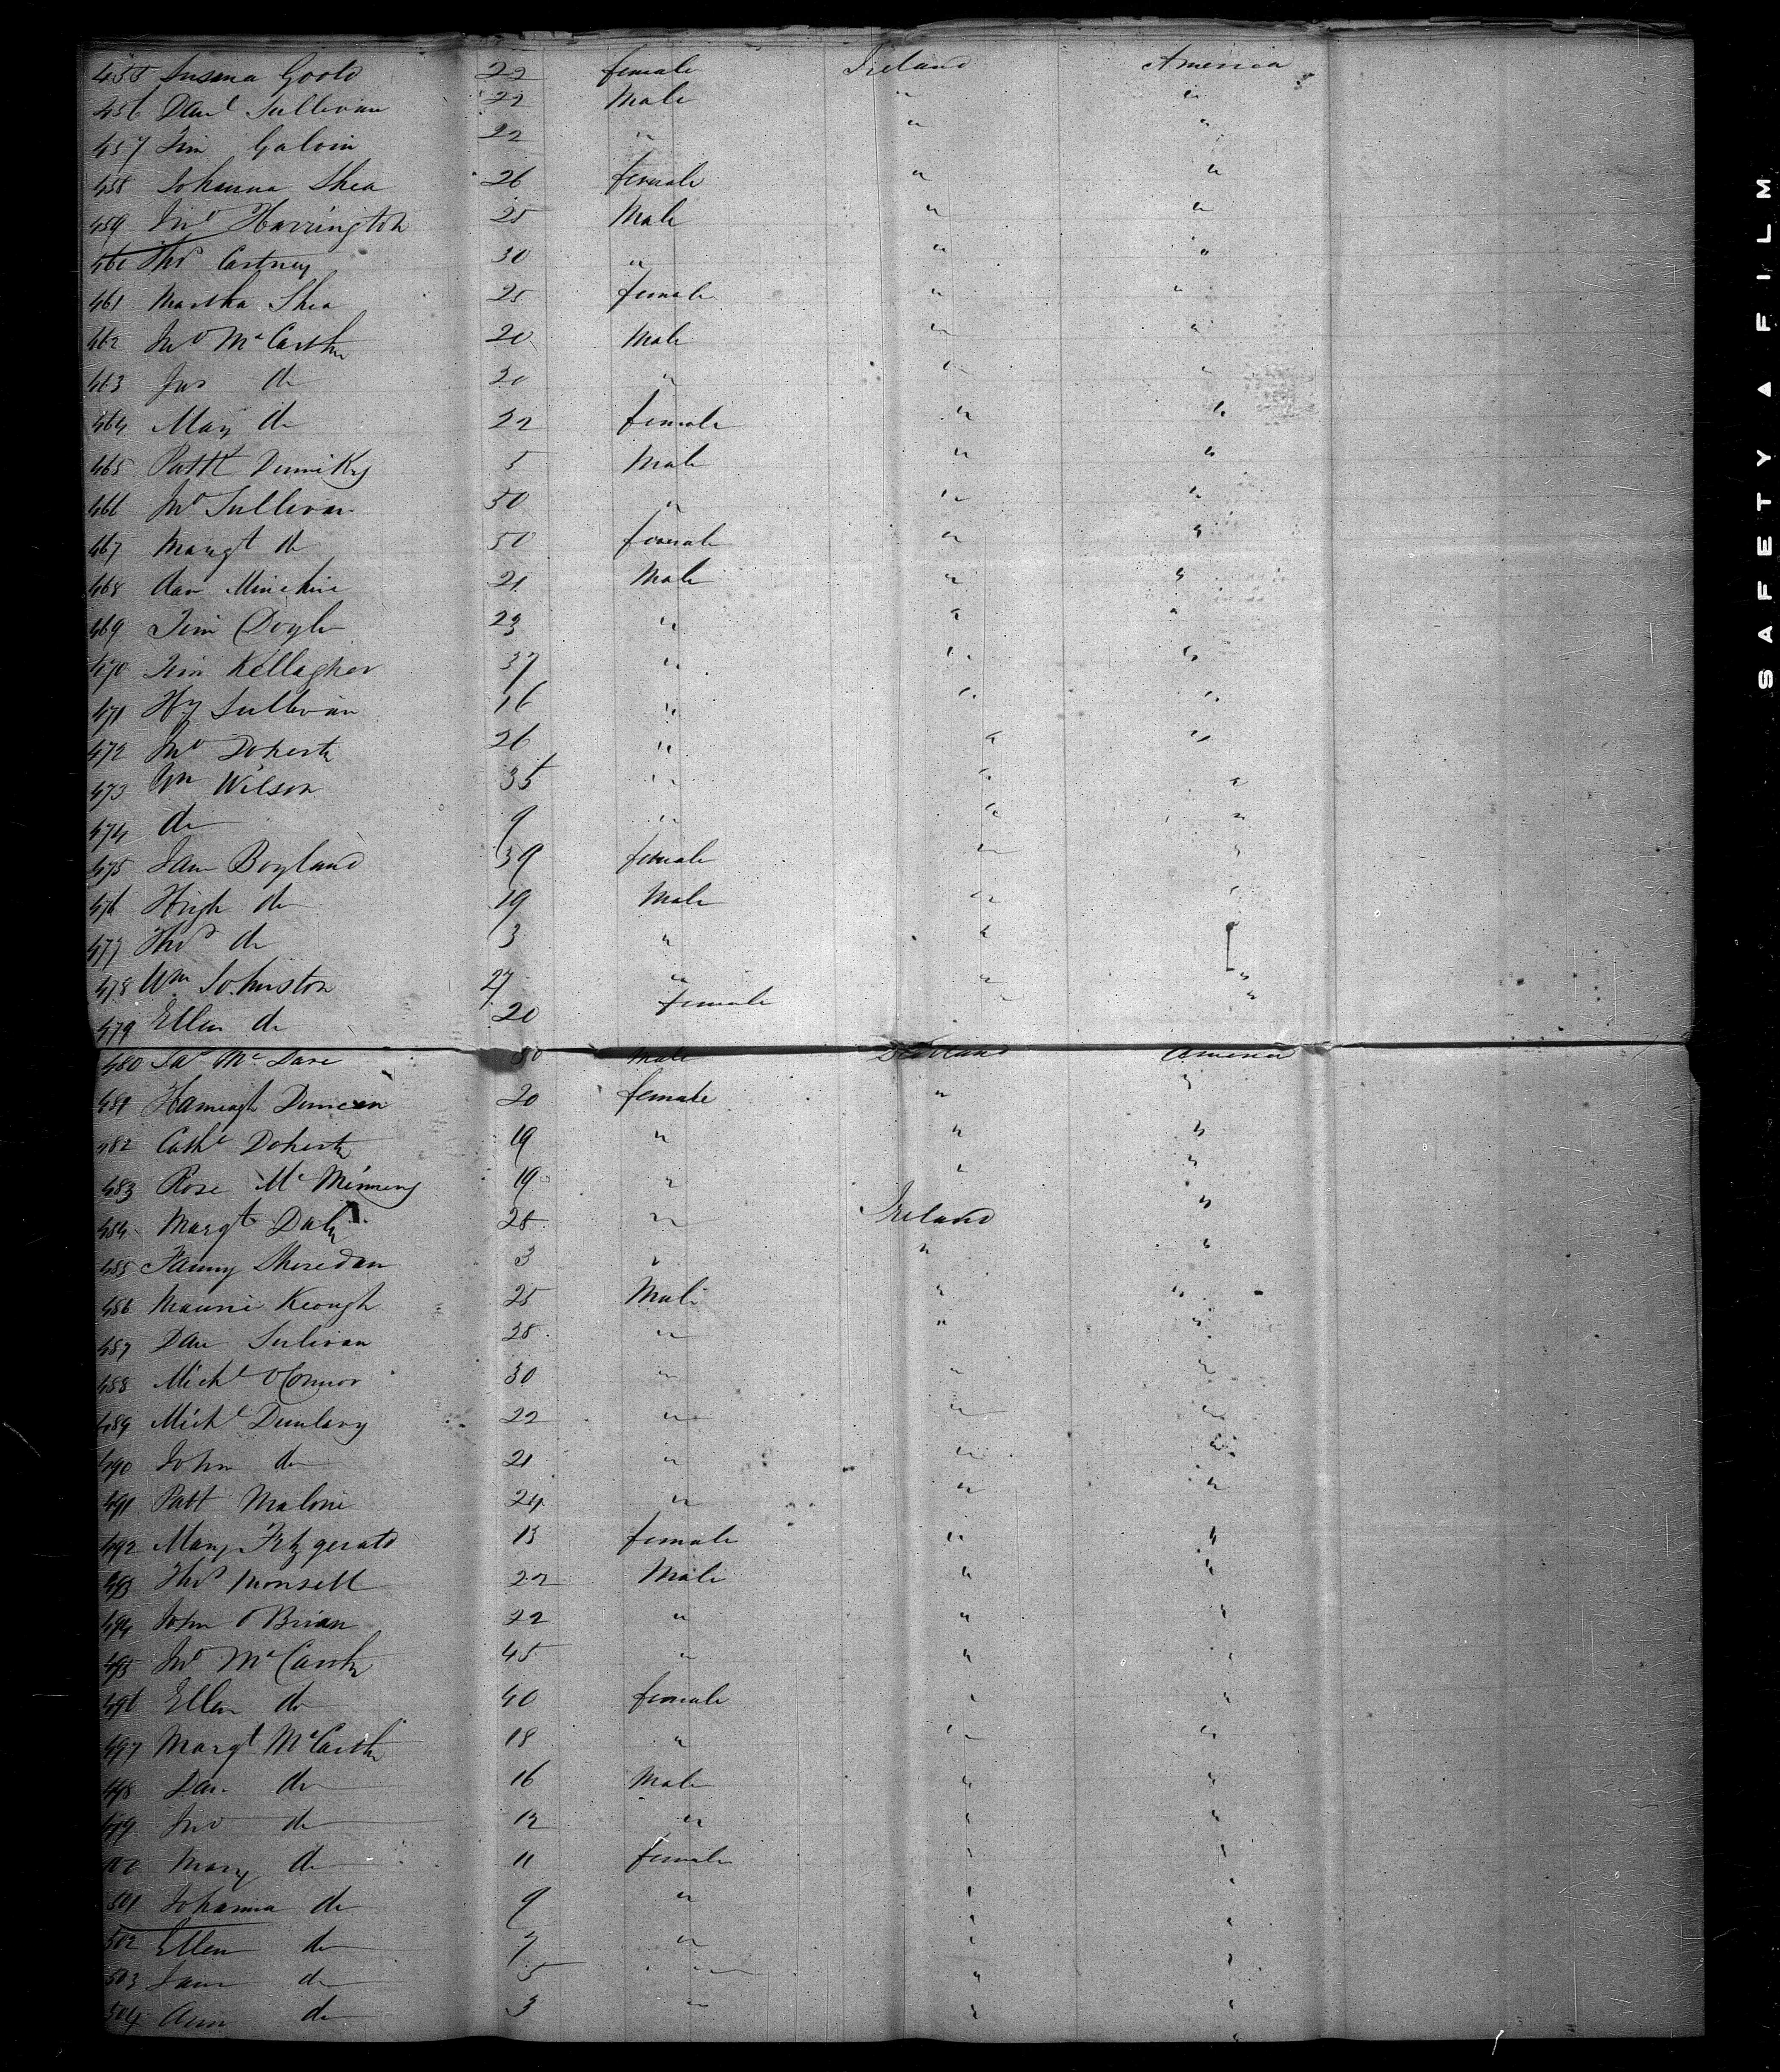 455 Susana Goold 22 female Ireland America
456 Danl Sullivan 22 Male " "
457 Tim Galvin 22 " " "
458 Johanna Shea 26 female " "
459 Jno Harrington 25 Male " "
460 Thos Cartney 30 " " "
461 Martha Shea 25 female " "
462 Jno McCarthy 20 Male " "
463 Jas do 20 " " "
464 Mary do 22 female " "
465 Patt 5 Male " "
466 Jno Sullivan 50 " " "
467 Margt do 50 female " "
468 Dan 21 Male " "
469 Tim Doyle 23 " " "
470 Tim Kellagher 37 " " "
471 Hy Sullivan 16 " " "
472 Jno Doherty 26 " " "
473 Wm Wilson 35 " " "
474 do 9 " " "
475 Jane Boyland 39 female " "
476 Hugh do 19 Male " "
477 Thos do 3 " " "
478 Wm Johnston 27 " " "
479 Ellen do 20 female " "
480 Jas Mc Male America
481 Duncan 20 female " "
482 Cathe Doherty 19 " " "
483 Rose Mc 19 " " "
484 Margt Daly 28 " Ireland "
485 Fanny Sheredan 3 " " "
486 Maurice Keough 25 Male " "
487 Dan Sulivan 28 " " "
488 Michl OConnor 30 " " "
489 Michl Dunlavy 22 " " "
490 John do 21 " " "
491 Patt Malone 24 " " "
492 Mary Fitzgerald 13 female " "
493 Thos Monsell 22 Male " "
494 John OBrian 22 " " "
495 Jno McCarthy 45 " " "
496 Ellen do 40 female " "
497 Margt McCarthy 18 " " "
498 Dan do 16 Male " "
499 Jno do 12 " " "
500 Mary do 11 female " "
501 Johanna do 9 " " "
502 Ellen do 7 " " "
503 Jane do 5 " " "
504 Ann do 3 " " "
SAFETY ▲ FILM